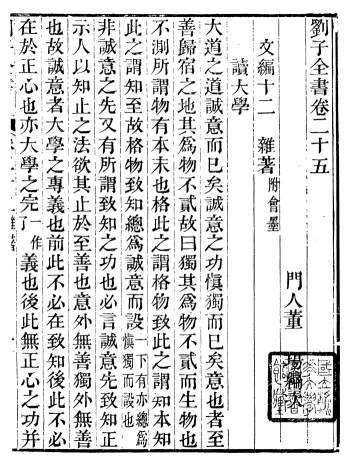 劉子全書卷二十五
門人董瑒編次
文編十二 雜著附會墨
讀大學
大道之道誠意而已矣誠意之功慎獨而已矣意也者至
善歸宿之地其為物不貳故曰獨其為物不貳而生物也
不測所謂物有本末也格此之謂格物致此之謂知本知
此之謂知至故格物致知總為誠意而設一下有亦總為慎獨而設也
非誠意之先又有所謂致知之功也必言誠意先致知正
示人以知止之法欲其止於至善也意外無善獨外無善
也故誠意者大學之專義也前此不必在致知後此不必
在於正心也亦大學之完了一作義也後此無正心之功并